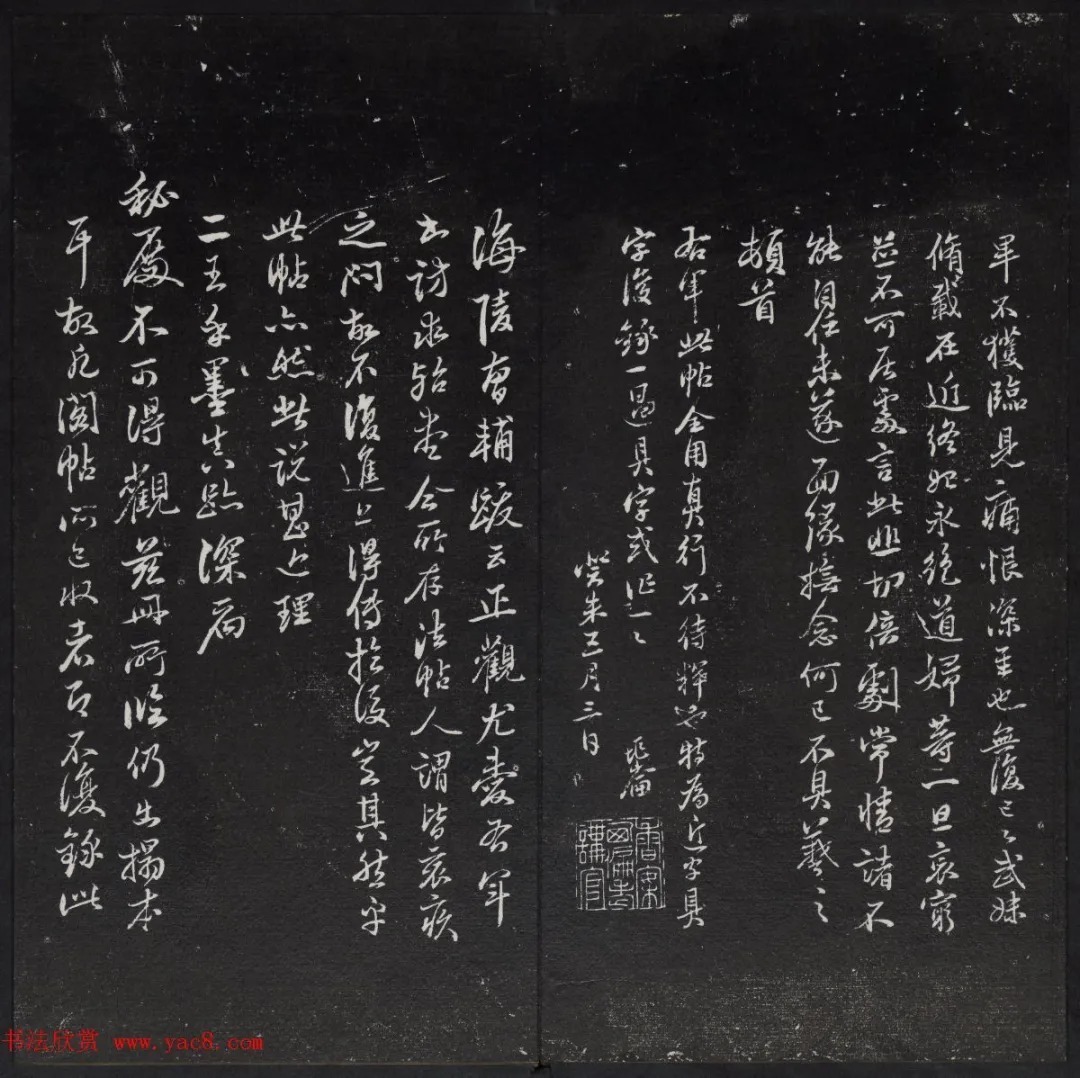 畢不獲臨見痛恨深至也無復已已武妹
脩載在近終始永絕道婦等一旦哀窮
並不可居處言此悲切倍劇常情諸不
能自任未遂面緣撫念何已不具羲之
頓首
右軍此帖全用真行不待釋也特為近字具
字後錄一過具字或作一之
癸未三月三日
海陵曾輔跋云正觀尤愛右軍
書訪求殆盡今所存法帖人謂皆哀疾
之問故不復進上得傳於後豈其然乎
此帖亦然此說甚近理
二王手墨真跡深局
秘廬不可得觀茲冊所臨仍出搨本
耳故凡閣帖所已收者即不復錄此
书法欣赏 www.yac8.com